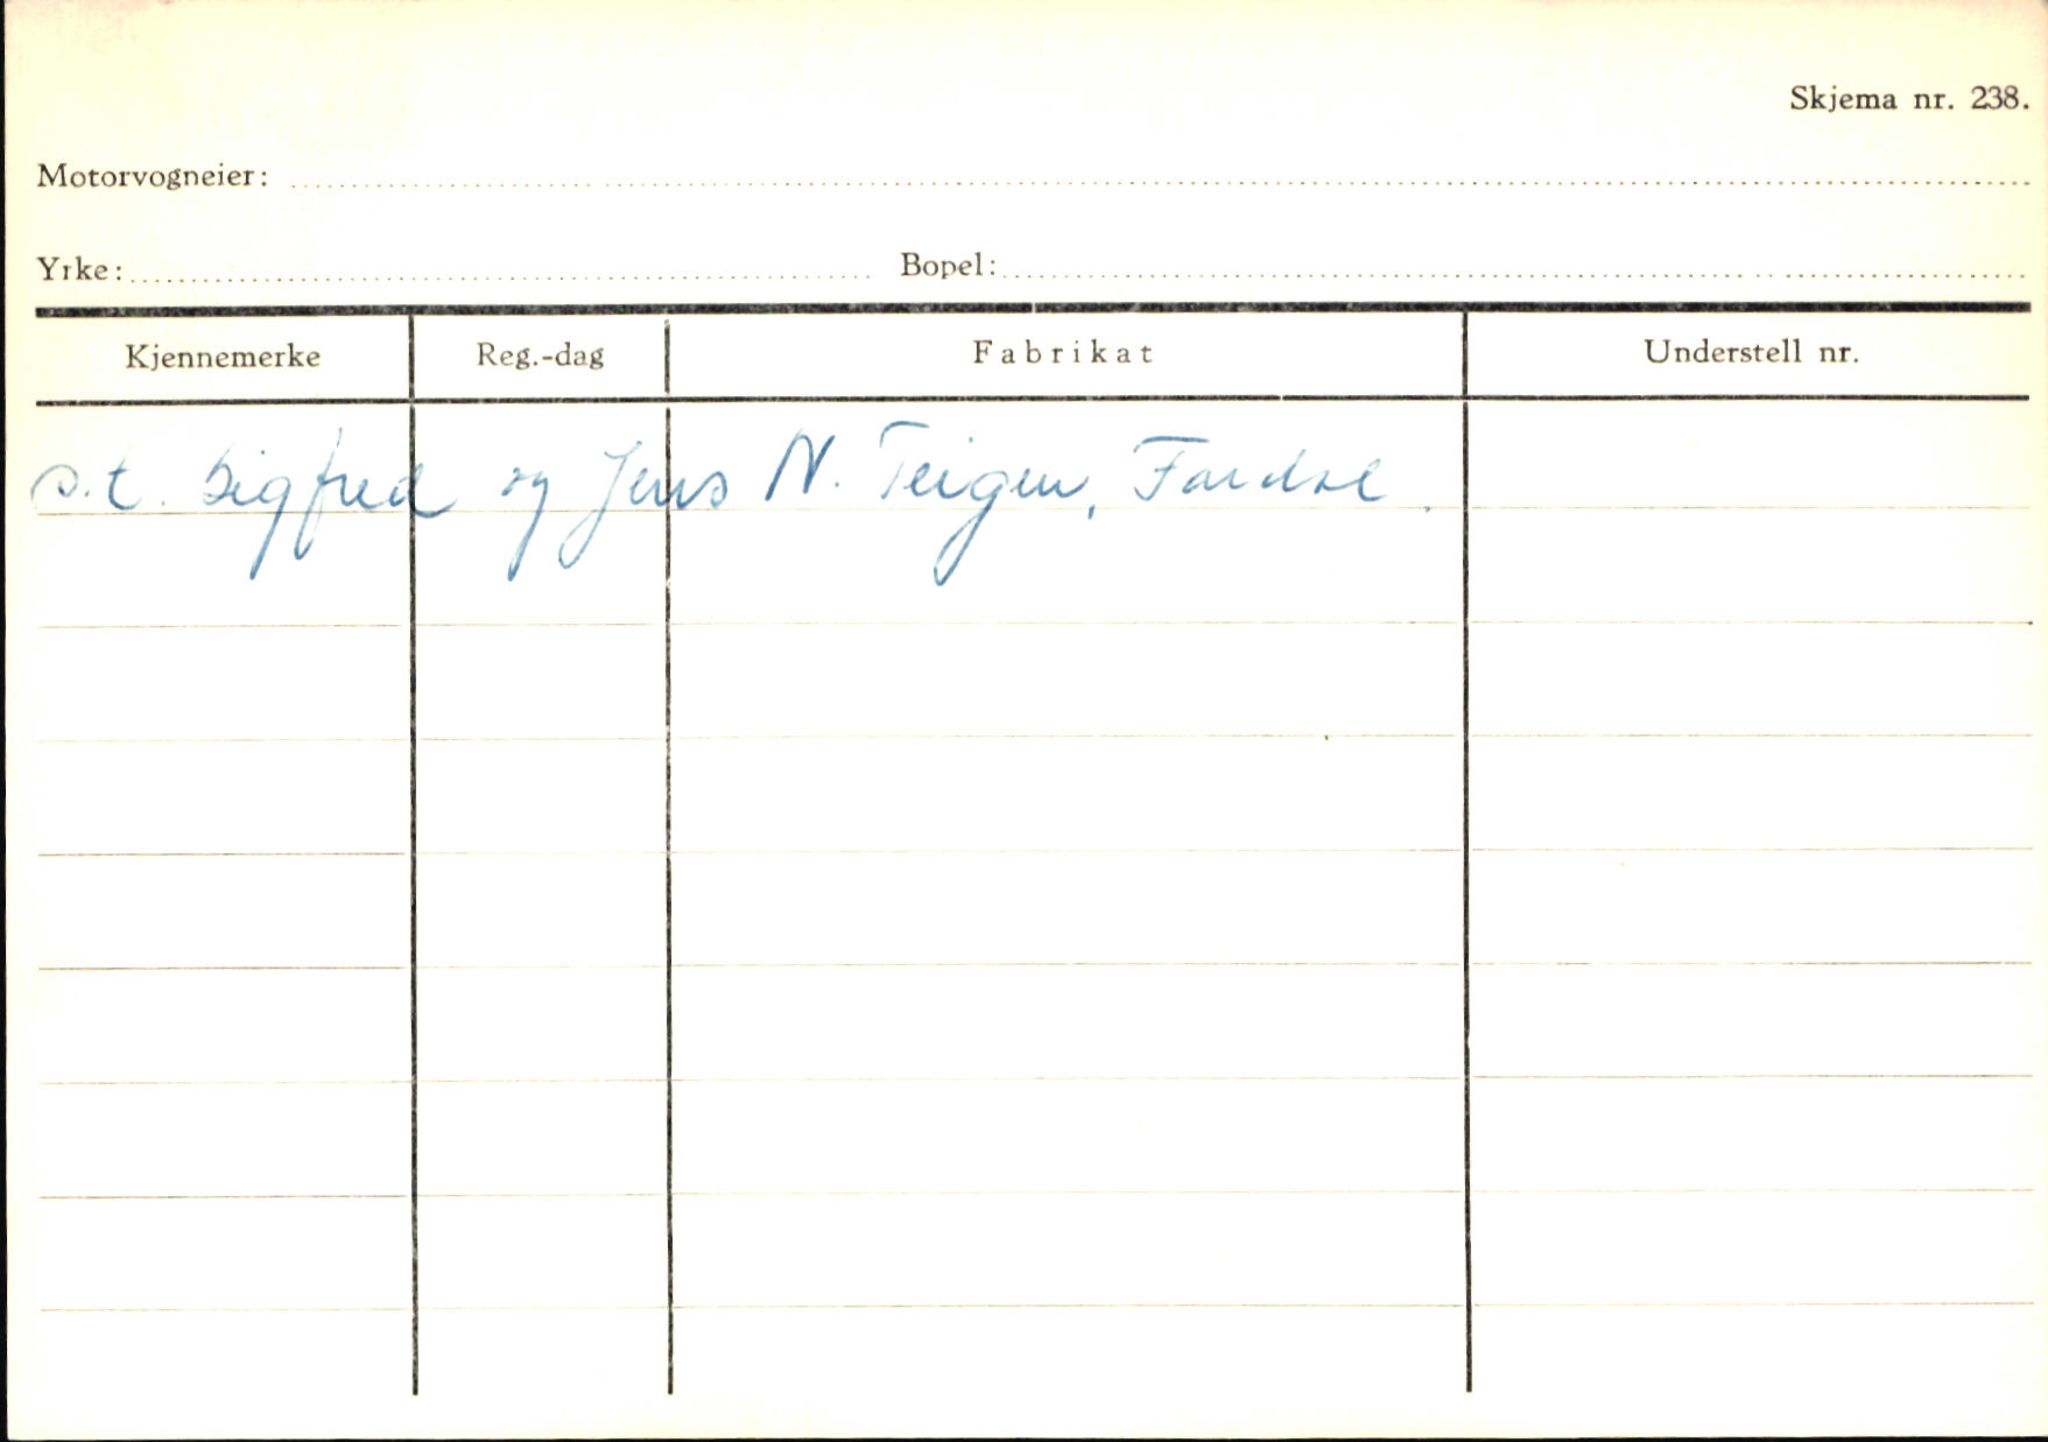 Skjema nr. 238.
Motorvogneier:
Yrke: Bopel:
Kjennemerke Reg.-dag Fabrikat Understell nr.
s.t. Sigfred og Jens N. Teigen, Fardal.